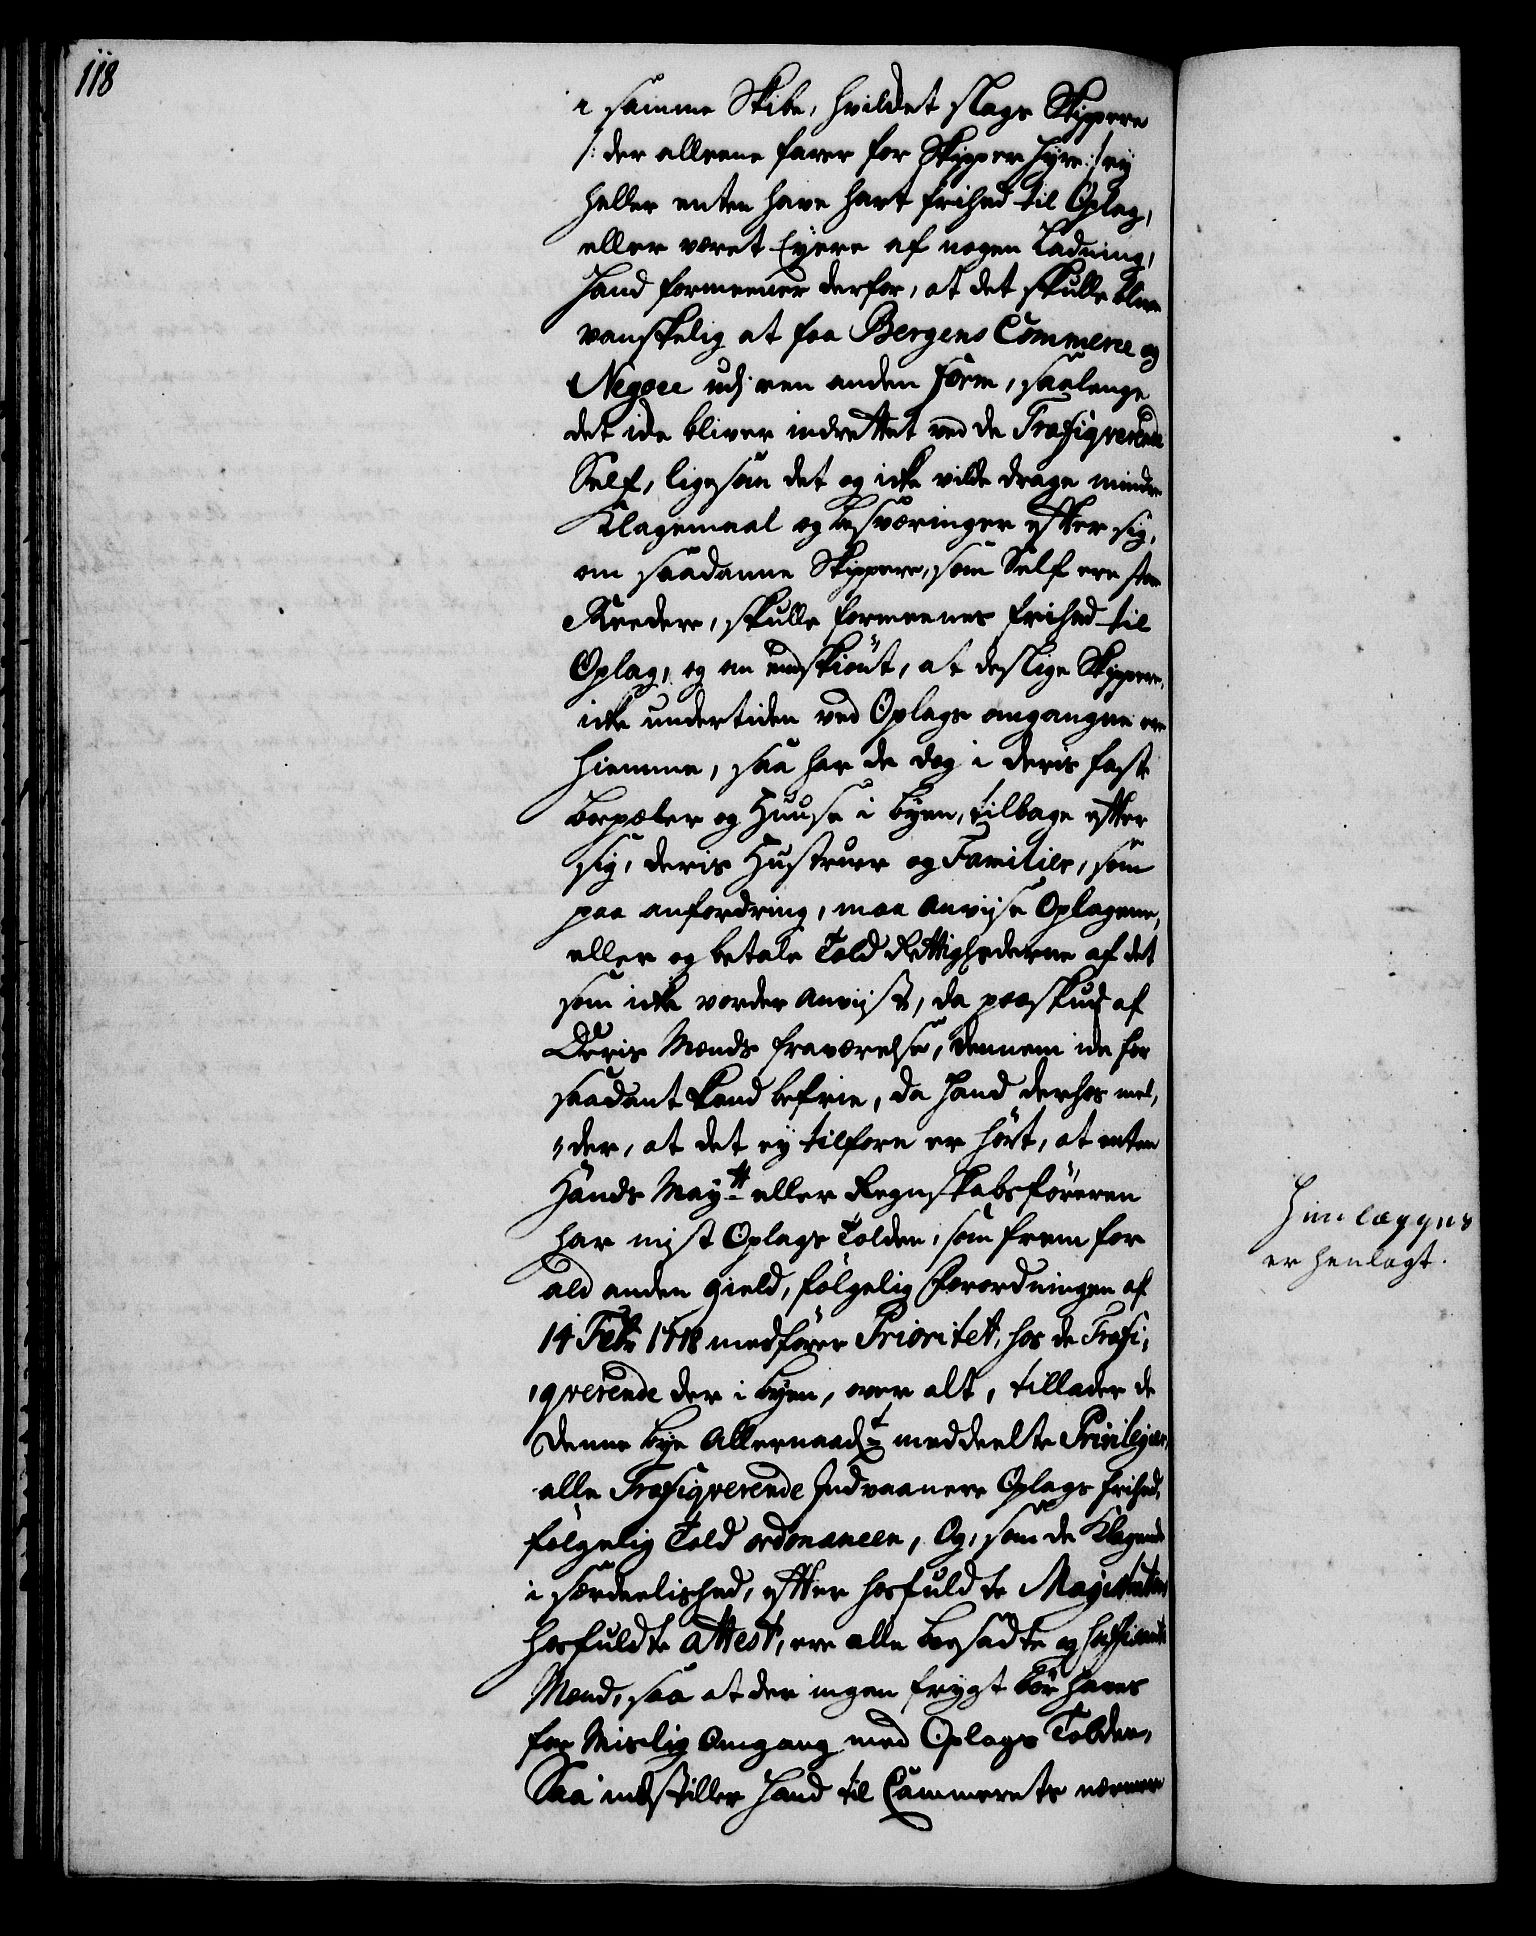 118
i samme Skibe, hvilcket slags Skippere
/: der alleene farer for Skipper Hyre :/ ey
heller enten have havt frihed til Oplag,
eller været Eyere af nogen Ladning,
Hand formeener derfor, at det skulle blive
vanskelig at faa Bergens Commerce og
Negoce udj een anden Form, saalenge
det icke bliver indrettet ved de Trafiqverende
Self, ligesom det og icke vilde drage mindre
Klagemaal og besværinger efter sig,
om saadanne Skippere, som Self ere
Reedere, skulle formeenes frihed til
Oplag, og om endskiönt, at deslige Skippere,
icke undertiden ved Oplags omgangene ere
hiemme, saa har de dog i deris faste
boepæler og Huuse i byen, tilbage efter
sig, deris Hustruer og Familier, som
paa anfordring, maa anviise Oplagene,
eller og betale Told Rettighederne af det
som icke vorder anviist, da paaskud af
Deris Mænds fraværelse, dennem icke for
saadant kand befrie, da Hand derhos mel,
,,der, at det ey tilforn er hört, at enten
Hands Mayts eller Regnskabsföreren
har mist Oplags Tolden, som frem for
ald anden gield, fölgelig Forordningen af
14 Febr 1718 medförer Prioritet, hos de Trafi,
,qverende der i byen, over alt, tillader de
denne bye Allernaadt meddeelte Privilegier,
alle Trafiqverende Indvaanere Oplags frihed,
fölgelig Told ordonancen, Og, som de Klagende
i særdeelished, efter hosfuldte Magistratens
hosfuldte attest, ere alle boesadte og suffisante
Mænd, saa at der ingen frygt bör haves
for Mislig Omgang med Oplags Tolden,
Saa indstiller Hand til Cammerets nærmere
Henlægges
er henlagt.